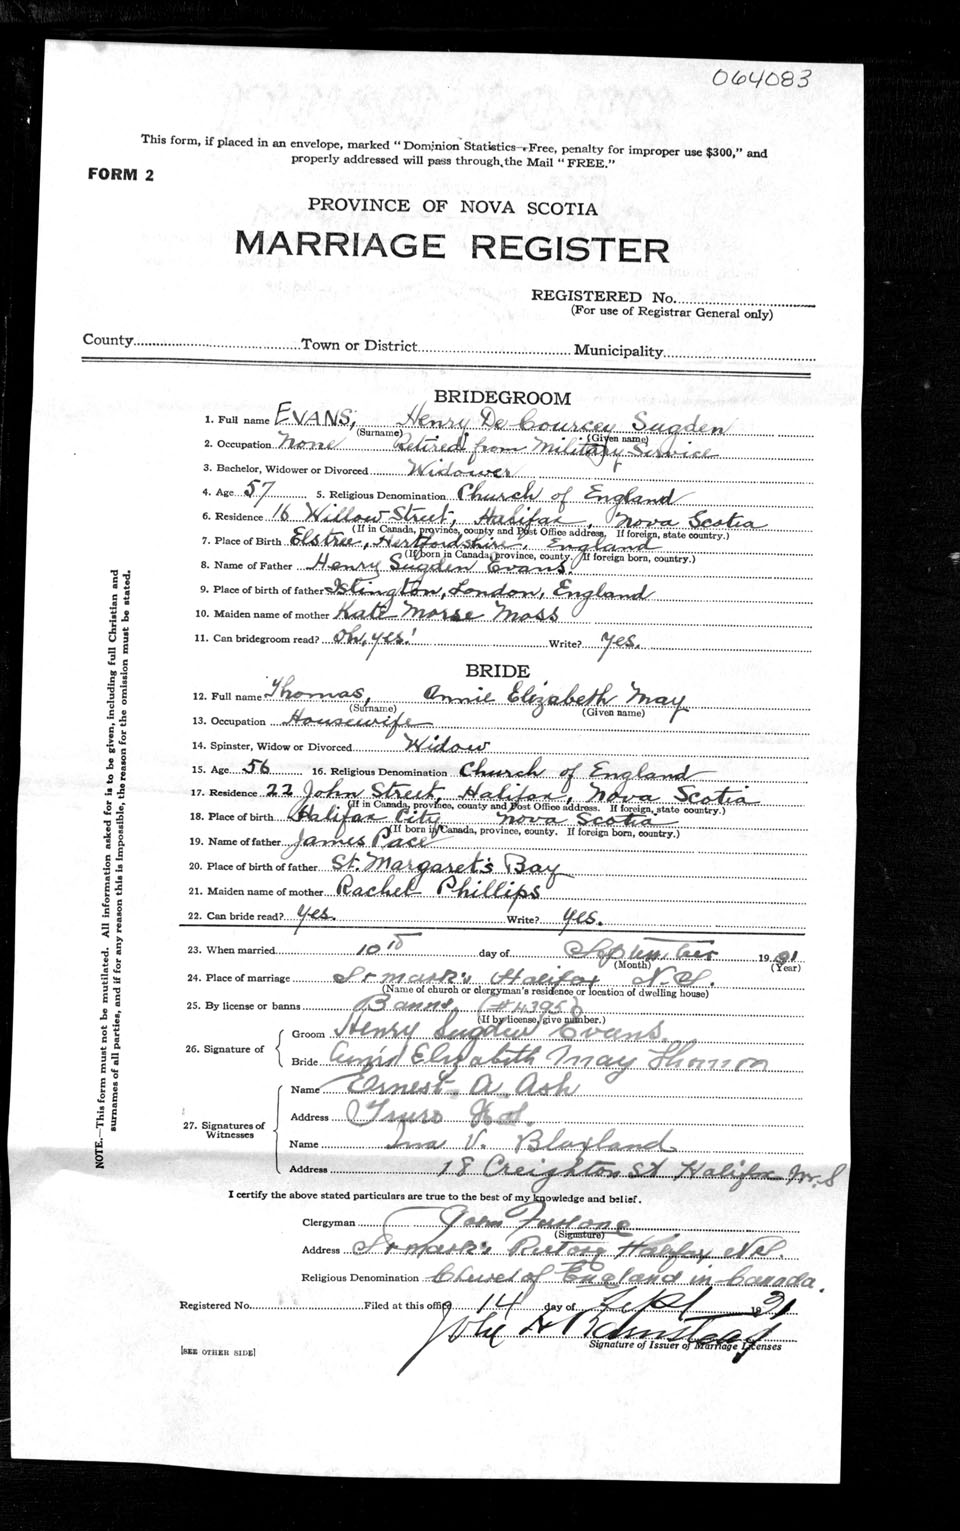 064083
This form, if placed in an envelope, marked "Dominion Statistics—Free, penalty for improper use $300," and
properly addressed will pass through the Mail "FREE."
FORM 2
PROVINCE OF NOVA SCOTIA
MARRIAGE REGISTER
REGISTERED No.
(For use of Registrar General only)
County Town or District Municipality
BRIDEGROOM
1. Full name EVANS, Henry De Courcey Sugden
(Surname) (Given name)
2. Occupation None Retired from Military Service
3. Bachelor, Widower or Divorced Widower
4. Age 57 5. Religious Denomination Church of England
6. Residence 16 Willow Street, Halifax, Nova Scotia
(If in Canada, province, county and Post Office address. If foreign, state country.)
7. Place of Birth Elstree, Hertfordshire, England
(If born in Canada, province, county. If foreign born, country.)
8. Name of Father Henry Sugden Evans.
9. Place of birth of father Islington, London, England
10. Maiden name of mother Kate Morse Moss
11. Can bridegroom read? Oh, yes! Write? Yes.
BRIDE
12. Full name Thomas, Annie Elizabeth May
(Surname) (Given name)
13. Occupation Housewife
14. Spinster, Widow or Divorced Widow
15. Age 56 16. Religious Denomination Church of England
17. Residence 22 John Street, Halifax, Nova Scotia
(If in Canada, province, county and Post Office address. If foreign, state country.)
18. Place of birth Halifax City Nova Scotia
(If born in Canada, province, county. If foreign born, country.)
19. Name of father James Pace
20. Place of birth of father St. Margaret's Bay
21. Maiden name of mother Rachel Phillips
22. Can bride read? Yes. Write? Yes.
23. When married 10th day of September 1931
(Month) (Year)
24. Place of marriage St Mark's Halifax N.S.
(Name of church or clergyman's residence or location of dwelling house)
25. By license or banns Banns (#4395)
(If by license, give number.)
26. Signature of Groom Henry Sugden Evans.
Bride Annie Elizabeth May Thomas
27. Signatures of Witnesses
Name Ernest A. Ash
Address Truro N.S.
Name Ina V. Blaxland
Address 18 Creighton St Halifax N.S
I certify the above stated particulars are true to the best of my knowledge and belief.
Clergyman John Furlong
(Signature)
Address St Mark's Rectory Halifax N.S.
Religious Denomination Church of England in Canada.
Registered No. Filed at this office 14 day of Sept 1931
Signature of Issuer of Marriage Licenses
[SEE OTHER SIDE]
NOTE.—This form must not be mutilated. All information asked for is to be given, including full Christian and
surnames of all parties, and if for any reason this is impossible, the reason for the omission must be stated.